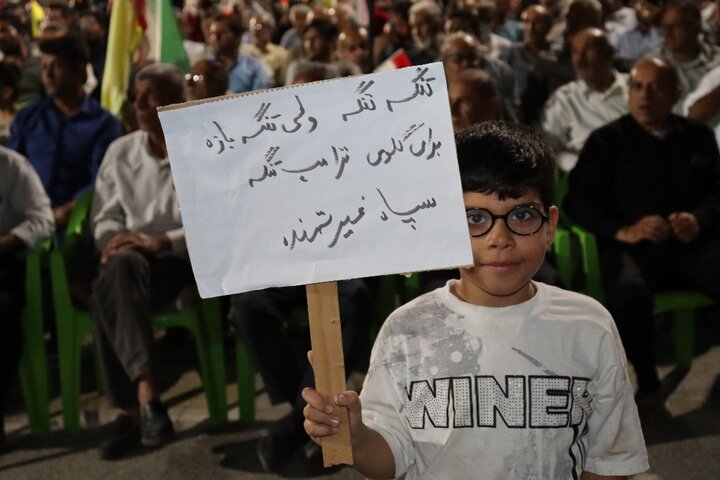 تنگه تنگه ولی تنگه بازه
برای گلوی ترامپ تنگه
سپاه غیرتمنده
WINER